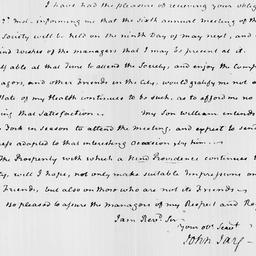 I have had the pleasure of receiving your oblig
Ult. informing me that the sixth annual meeting of the
Society will be held on the ninth Day of may next, and
kind wishes of the managers that I may be present at it.
able at that Time to attend the Society, and enjoy the Comp
agers, and other Friends in the City, would gratify me not a
State of my Health continues to be such, as to afford me no
ing that Satisfaction. My son William intends
York in season to attend the meeting, and expect to send
ress adapted to that interesting Occasion by him
The Prosperity with which a kind Providence continues t
ty, will I hope, not only make suitable Impressions on
Friends, but also on those who are not its Friends
be pleased to assure the managers of my Respect and Reg
I am Revd. Sir
your obt. Servt
John Jay